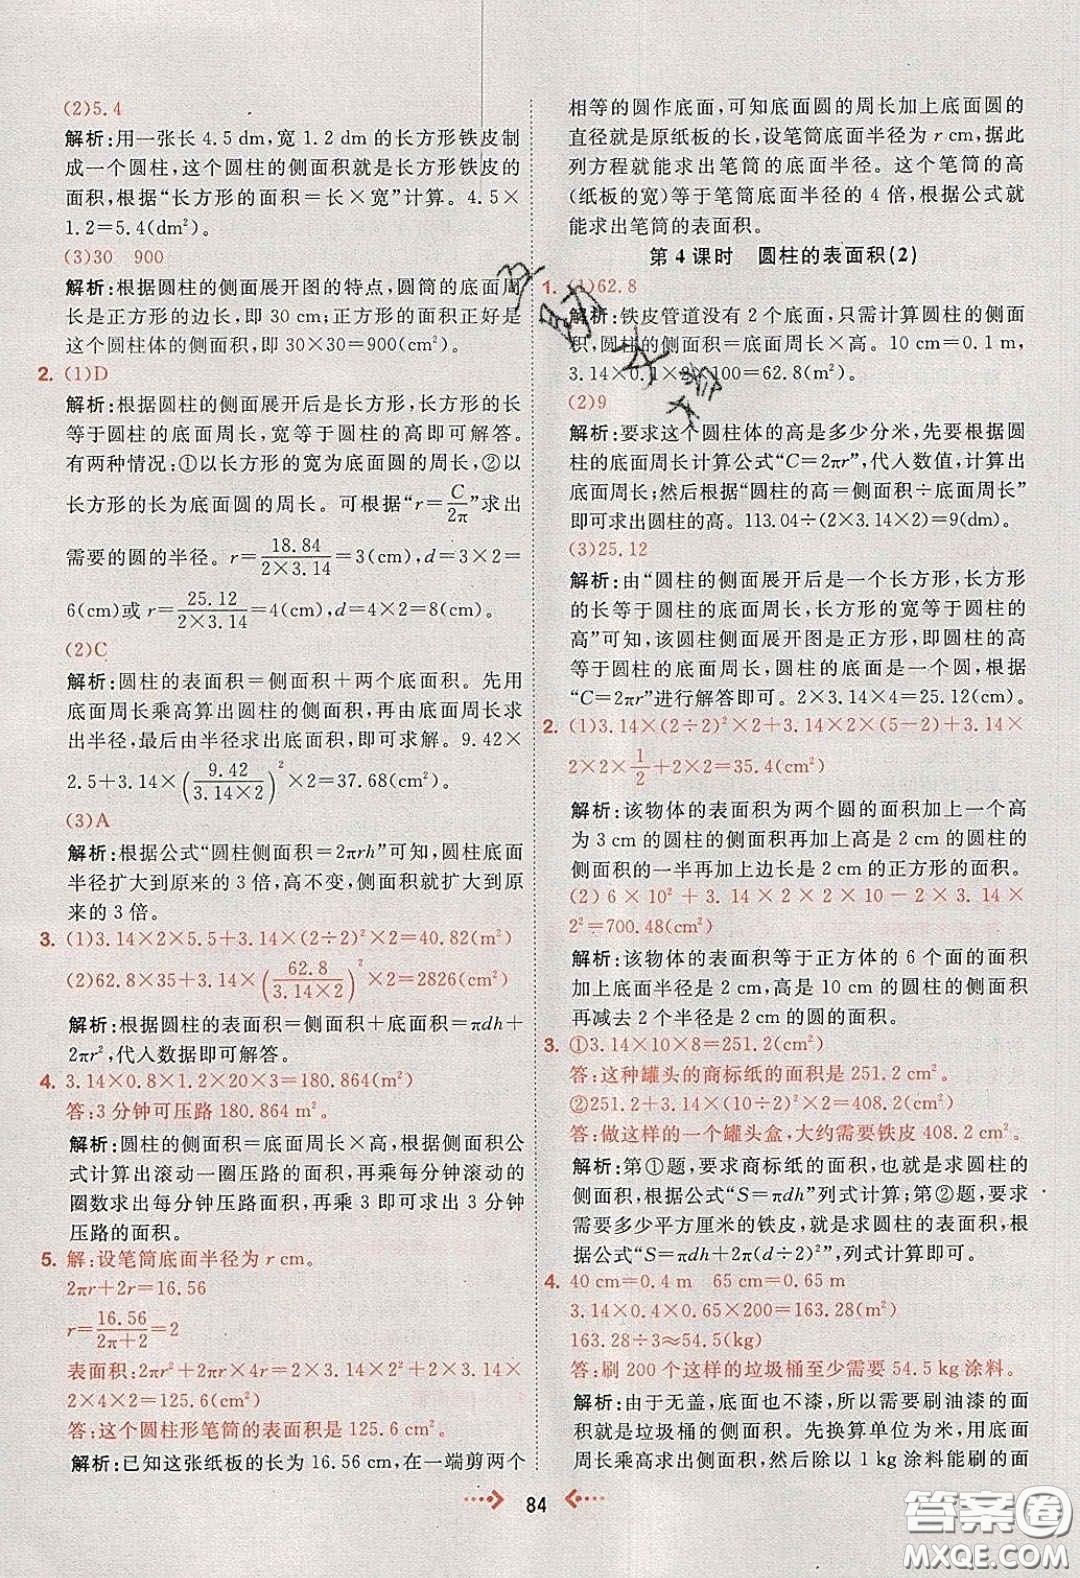 (2)5.4
解析:用一张长 4.5 dm,宽 1.2 dm 的长方形铁皮制
成一个圆柱,这个圆柱的侧面积就是长方形铁皮的
面积,根据“长方形的面积=长×宽”计算。4.5×
1.2=5.4(dm²)。
(3)30 900
解析:根据圆柱的侧面展开图的特点,圆筒的底面周
长是正方形的边长,即 30 cm;正方形的面积正好是
这个圆柱体的侧面积,即 30×30=900(cm²)。
2. (1)D
解析:根据圆柱的侧面展开后是长方形,长方形的长
等于圆柱的底面周长,宽等于圆柱的高即可解答。
有两种情况:①以长方形的宽为底面圆的周长,②以
长方形的长为底面圆的周长。可根据“r=C/2π”求出
需要的圆的半径。r=18.84/(2×3.14)=3(cm),d=3×2=
6(cm)或 r=25.12/(2×3.14)=4(cm),d=4×2=8(cm)。
(2)C
解析:圆柱的表面积=侧面积+两个底面积。先用
底面周长乘高算出圆柱的侧面积,再由底面周长求
出半径,最后由半径求出底面积,即可求解。9.42×
2.5+3.14×(9.42/(3.14×2))²×2=37.68(cm²)。
(3)A
解析:根据公式“圆柱侧面积=2πrh”可知,圆柱底面
半径扩大到原来的 3 倍,高不变,侧面积就扩大到原
来的 3 倍。
3. (1)3.14×2×5.5+3.14×(2÷2)²×2=40.82(m²)
(2)62.8×35+3.14×(62.8/(3.14×2))²×2=2826(cm²)
解析:根据圆柱的表面积=侧面积+底面积=πdh+
2πr²,代入数据即可解答。
4. 3.14×0.8×1.2×20×3=180.864(m²)
答:3 分钟可压路 180.864 m²。
解析:圆柱的侧面积=底面周长×高,根据侧面积公
式计算出滚动一圈压路的面积,再乘每分钟滚动的
圈数求出每分钟压路面积,再乘 3 即可求出 3 分钟
压路的面积。
5. 解:设笔筒底面半径为 r cm。
2πr+2r=16.56
r=16.56/(2π+2)=2
表面积:2πr²+2πr×4r=2×3.14×2²+2×3.14×
2×4×2=125.6(cm²)
答:这个圆柱形笔筒的表面积是 125.6 cm²。
解析:已知这张纸板的长为 16.56 cm,在一端剪两个
相等的圆作底面,可知底面圆的周长加上底面圆的
直径就是原纸板的长,设笔筒底面半径为 r cm,据此
列方程就能求出笔筒的底面半径。这个笔筒的高
(纸板的宽)等于笔筒底面半径的 4 倍,根据公式就
能求出笔筒的表面积。
第 4 课时 圆柱的表面积(2)
1. (1)62.8
解析:铁皮管道没有 2 个底面,只需计算圆柱的侧面
积,圆柱的侧面积=底面周长×高。10 cm=0.1 m,
3.14×0.1×2×100=62.8(m²)。
(2)9
解析:要求这个圆柱体的高是多少分米,先要根据圆
柱的底面周长计算公式“C=2πr”,代入数值,计算出
底面周长;然后根据“圆柱的高=侧面积÷底面周长”
即可求出圆柱的高。113.04÷(2×3.14×2)=9(dm)。
(3)25.12
解析:由“圆柱的侧面展开后是一个长方形,长方形
的长等于圆柱的底面周长,长方形的宽等于圆柱的
高”可知,该圆柱侧面展开图是正方形,即圆柱的高
等于圆柱的底面周长,圆柱的底面是一个圆,根据
“C=2πr”进行解答即可。2×3.14×4=25.12(cm)。
2. (1)3.14×(2÷2)²×2+3.14×2×(5-2)+3.14×
2×2×1/2+2×2=35.4(cm²)
解析:该物体的表面积为两个圆的面积加上一个高
为 3 cm 的圆柱的侧面积再加上高是 2 cm 的圆柱
侧面积的一半再加上边长是 2 cm 的正方形的面积。
(2) 6 × 10² + 3.14 × 2 × 2 × 10 - 2 × 3.14 ×
2²=700.48(cm²)
解析:该物体的表面积等于正方体的 6 个面的面积
加上底面半径是 2 cm,高是 10 cm 的圆柱的侧面积
再减去 2 个半径是 2 cm 的圆的面积。
3. ①3.14×10×8=251.2(cm²)
答:这种罐头的商标纸的面积是 251.2 cm²。
②251.2+3.14×(10÷2)²×2=408.2(cm²)
答:做这样的一个罐头盒,大约需要铁皮 408.2 cm²。
解析:第①题,要求商标纸的面积,也就是求圆柱体
的侧面积,根据公式“S=πdh”列式计算;第②题,要求
需要多少平方厘米的铁皮,就是求圆柱的表面积,根
据公式“S=πdh+2π(d÷2)²”,列式计算即可。
4. 40 cm=0.4 m 65 cm=0.65 m
3.14×0.4×0.65×200=163.28(m²)
163.28÷3≈54.5(kg)
答:刷 200 个这样的垃圾桶至少需要 54.5 kg 涂料。
解析:由于无盖,底面也不漆,所以需要刷油漆的面
积就是垃圾桶的侧面积。先换算单位为米,用底面
周长乘高求出侧面积,然后除以 1 kg 涂料能刷的面
84
答案圈
MXQE.COM